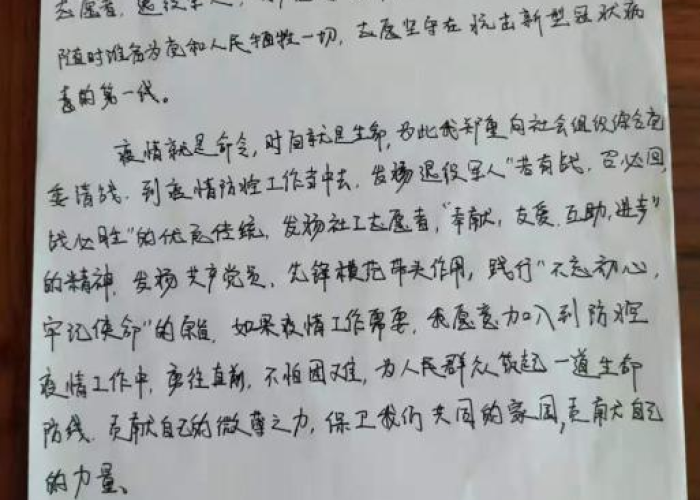 志愿者，退役军人，
随时准备为党和人民牺牲一切，志愿坚守在抗击新型冠状病
毒的第一代。
疫情就是命令，时间就是生命，为此我郑重向社会组织综合党
委请战，到疫情防控工作当中去，发扬退役军人“若有战，召必回，
战必胜”的优良传统，发扬社工志愿者，“奉献，友爱，互助，进步”
的精神，发扬共产党员，先锋模范带头作用，践行“不忘初心，
牢记使命”的，如果疫情工作需要，我愿意加入到防控
疫情工作中，勇往直前，不怕困难，为人民群众筑起一道生命
防线，贡献自己的微薄之力，保卫我们共同的家园，贡献自己
的力量、